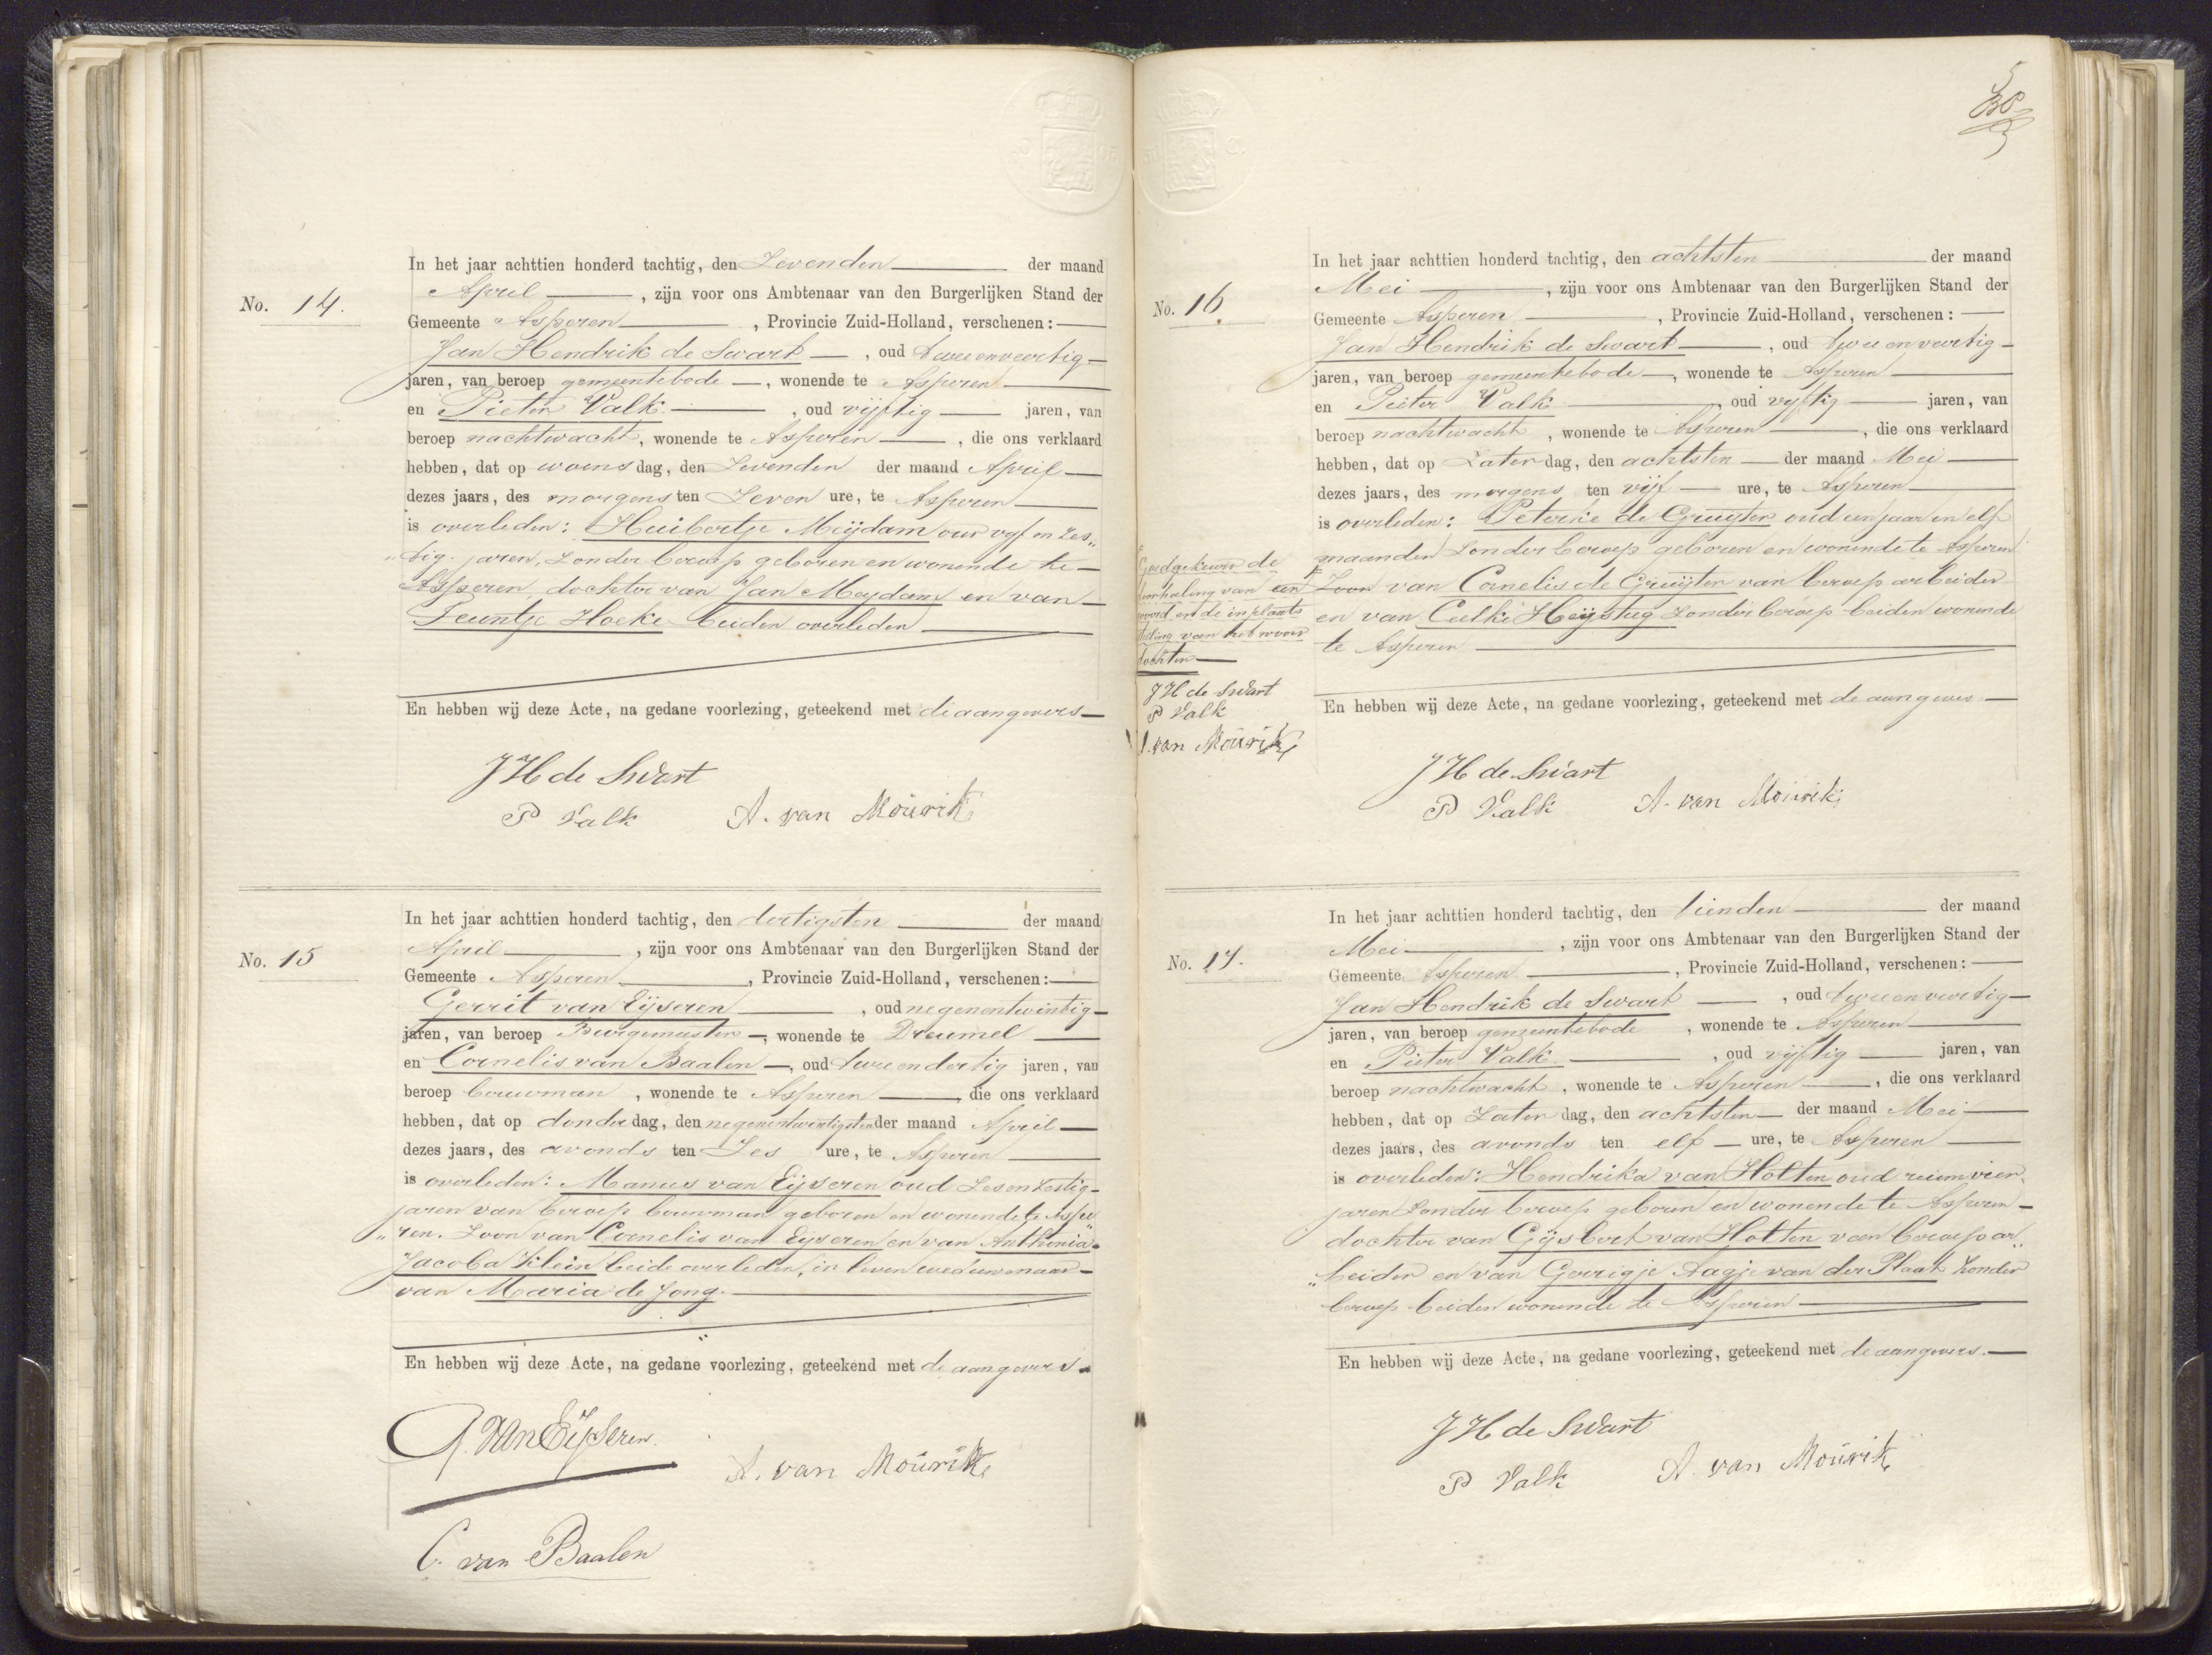 No. 14.
In het jaar achttien honderd tachtig, den Zevenden der maand
April, zijn voor ons Ambtenaar van den Burgerlijken Stand der
Gemeente Asperen, Provincie Zuid-Holland, verschenen:
Jan Hendrik de Swart, oud tweeenveertig
jaren, van beroep gemeentebode, wonende te Asperen
en Pieter Valk, oud vijftig jaren, van
beroep nachtwacht, wonende te Asperen, die ons verklaard
hebben, dat op woensdag, den Zevenden der maand April
dezes jaars, des morgens ten Zeven ure, te Asperen
is overleden: Huibertje Meijdam oud vijf en zes„
„tig jaren, Zonder beroep geboren en wonende te
Asperen, dochter van Jan Meydam en van
Teuntje Hoeke beiden overleden
En hebben wij deze Acte, na gedane voorlezing, geteekend met de aangevers
JH de Swart
P Valk A. van Mourik
No. 15
In het jaar achttien honderd tachtig, den dertigsten der maand
April, zijn voor ons Ambtenaar van den Burgerlijken Stand der
Gemeente Asperen, Provincie Zuid-Holland, verschenen:
Gerrit van Eijseren, oud negenentwintig
jaren, van beroep Burgemeester, wonende te Dreumel
en Cornelis van Baalen, oud tweeendertig jaren, van
beroep bouwman, wonende te Asperen, die ons verklaard
hebben, dat op donderdag, den negenentwintigsten der maand April
dezes jaars, des avonds ten Zes ure, te Asperen
is overleden: Manus van Eijseren oud Zesenzestig
jaren van beroep bouwman geboren en wonende te Aspe
„ren. Zoon van Cornelis van Eijseren en van Anthonia
Jacoba Klein beide overleden, in leven weduwenaar
van Maria de Jong.
En hebben wij deze Acte, na gedane voorlezing, geteekend met de aangevers
G. van Eijseren.
A. van Mourik
C. van Baalen
No. 16.
In het jaar achttien honderd tachtig, den achtsten der maand
Mei, zijn voor ons Ambtenaar van den Burgerlijken Stand der
Gemeente Asperen, Provincie Zuid-Holland, verschenen:
Jan Hendrik de Swart, oud tweeenveertig
jaren, van beroep gemeentebode, wonende te Asperen
en Pieter Valk, oud vijftig jaren, van
beroep nachtwacht, wonende te Asperen, die ons verklaard
hebben, dat op Zaterdag, den achtsten der maand Mei
dezes jaars, des morgens ten vijf ure, te Asperen
is overleden: Peterke de Gruijter oud een jaar en elf
maanden Zonder beroep geboren en wonende te Asperen
Zoon van Cornelis de Gruijter van beroep arbeider
en van Ceelke Heijstieg Zonder beroep beiden wonende
te Asperen
Goedgekeurd de
doorhaling van een
woord en de inplaats
stelling van het woord
dochter
JH de Swart
P Valk
A. van Mourik
En hebben wij deze Acte, na gedane voorlezing, geteekend met de aangevers
JH de Swart
P Valk A. van Mourik
No. 17.
In het jaar achttien honderd tachtig, den tienden der maand
Mei, zijn voor ons Ambtenaar van den Burgerlijken Stand der
Gemeente Asperen, Provincie Zuid-Holland, verschenen:
Jan Hendrik de Swart, oud tweeenveertig
jaren, van beroep gemeentebode, wonende te Asperen
en Pieter Valk, oud vijftig jaren, van
beroep nachtwacht, wonende te Asperen, die ons verklaard
hebben, dat op Zaterdag, den achtsten der maand Mei
dezes jaars, des avonds ten elf ure, te Asperen
is overleden: Hendrika van Holten oud ruim vier
jaren Zonder beroep geboren en wonende te Asperen
dochter van Gijsbert van Holten van beroep ar„
„beider en van Gerrigje Aagje van der Plaat Zonder
beroep beiden wonende te Asperen
En hebben wij deze Acte, na gedane voorlezing, geteekend met de aangevers.
JH de Swart
P Valk A. van Mourik